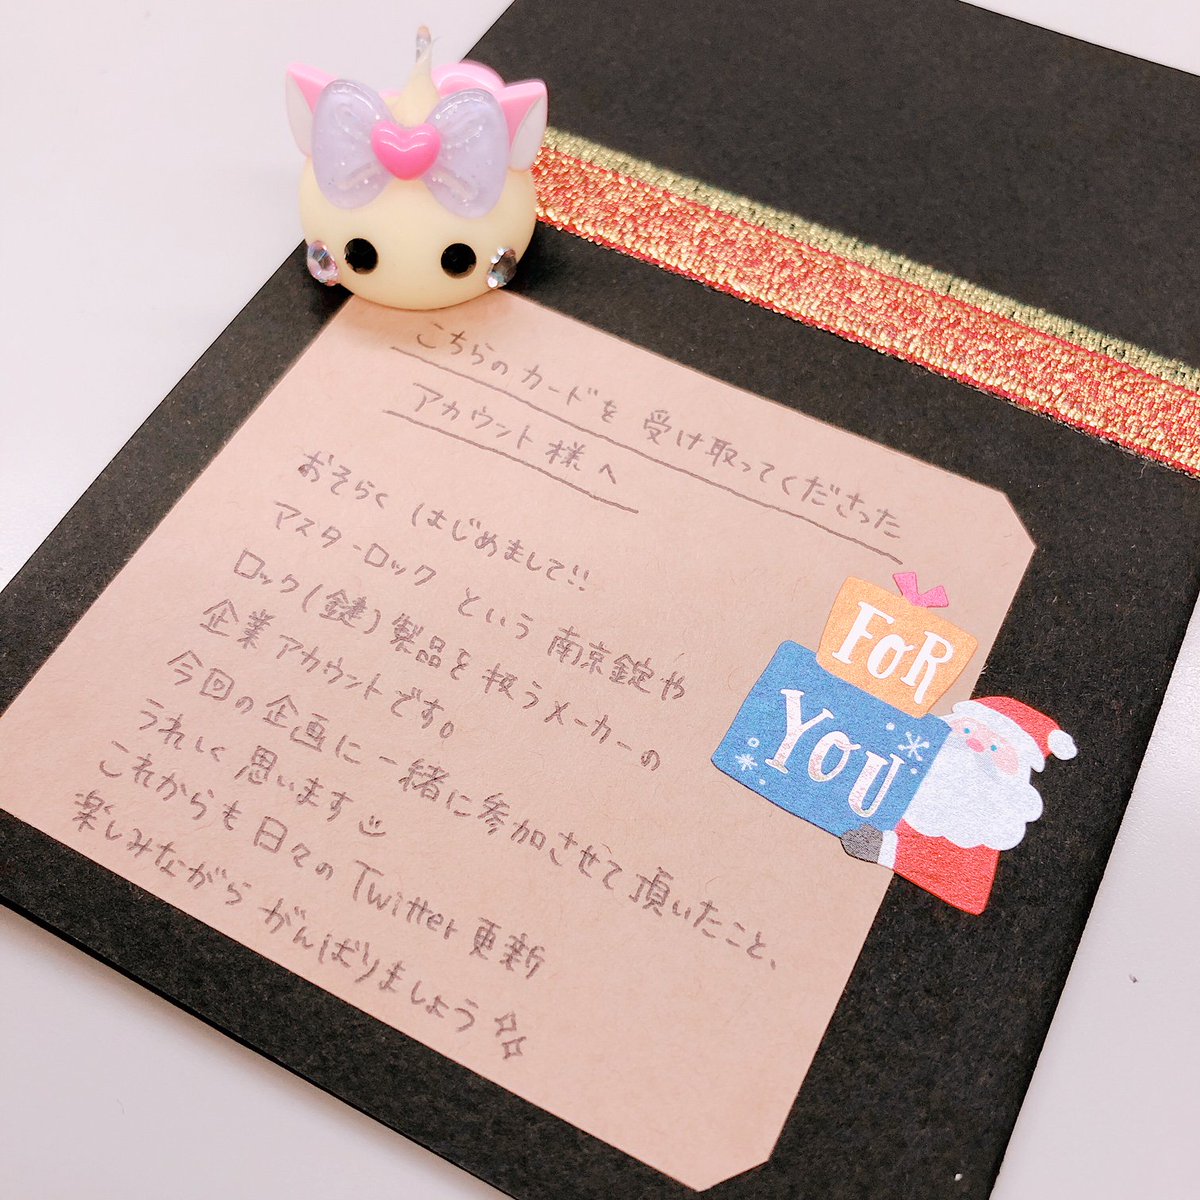 こちらのカードを受け取ってくださった
アカウント様へ
おそらくはじめまして!!
マスターロックという南京錠や
ロック(鍵)製品を扱うメーカーの
企業アカウントです。
今回の企画に一緒に参加させて頂いたこと、
うれしく思います
これからも日々のTwitter更新
楽しみながらがんばりましょう
FOR
YOU